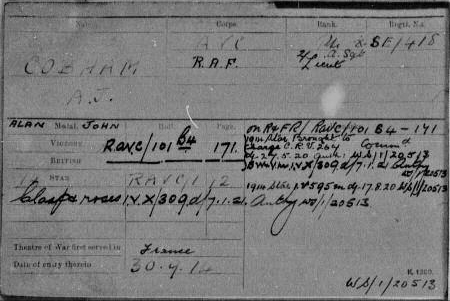 Name. Corps. Rank. Regtl. No.
COBHAM AVC A. Sgt SE/418
A.J. R.A.F. 2/Lieut
ALAN JOHN
Medal. Roll. Page.
Victory RAVC/101 B4 171.
British
Star RAVC/1 2
Clasp & roses I.V.X/309d/7.1.21.
on R&FR/RAVC/101 B4 - 171
1914 Star Brought to
charge C.R.V. 264
d/-27.5.20 Auth: WS/1/20513
1914 Star, I V 595 m d/- 17.8.20 WS/1/20513
Theatre of War first served in France
Date of entry therein 30.9.14
K. 1380.
WS/1/20513